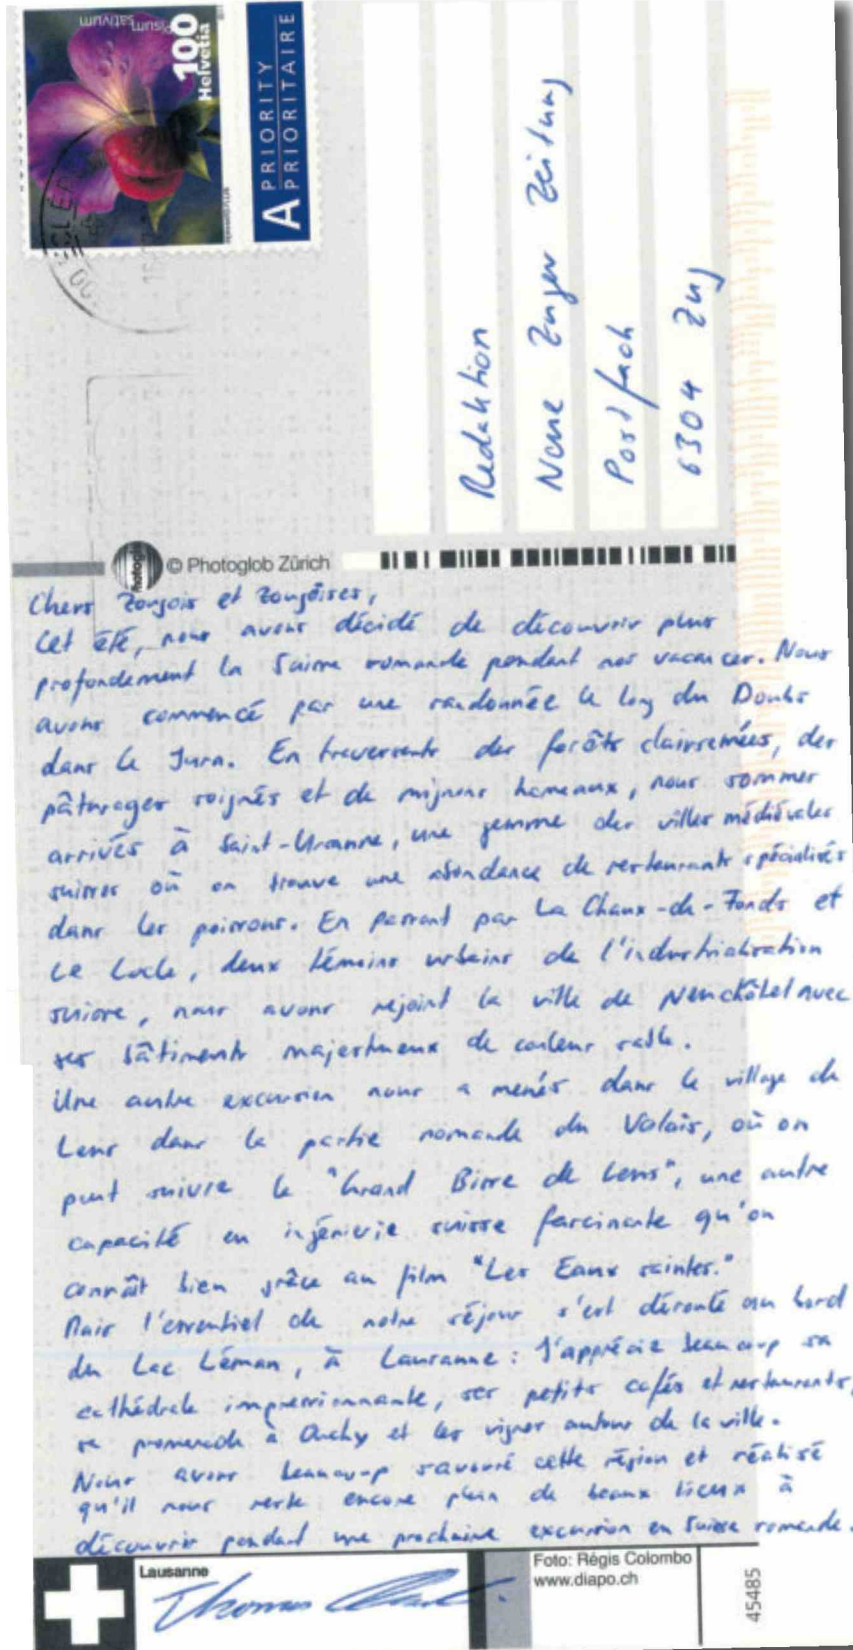 Pisum sativum
100
Helvetia
A PRIORITY
PRIORITAIRE
Redaktion
Neue Zuger Zeitung
Postfach
6304 Zug
© Photoglob Zürich
Chers Zougois et Zougoises,
Cet été, nous avons décidé de découvrir plus
profondement la Suisse romande pendant nos vacances. Nous
avons commencé par une randonnée le long du Doubs
dans le Jura. En traversants des forêts clairsemées, des
pâturages soignés et de mignons hameaux, nous sommes
arrivés à Saint-Ursanne, une gemme des villes médiévales
suisses où on trouve une abondance de restaurants spécialisés
dans les poissons. En passant par La Chaux-de-Fonds et
Le Locle, deux témoins urbains de l'industrialisation
suisse, nous avons rejoint la ville de Neuchâtel avec
ses bâtiments majestueux de couleur sable.
Une autre excursion nous a menés dans le village de
Lens dans la partie romande du Valais, où on
peut suivre le "Grand Bisse de Lens", une autre
capacité en ingénierie suisse fascinante qu'on
connaît bien grâce au film "Les Eaux saintes."
Mais l'essentiel de notre séjour s'est déroulé au bord
du Lac Léman, à Lausanne: J'apprécie beaucoup sa
cathédrale impressionnante, ses petits cafés et restaurants,
sa promenade à Ouchy et les vignes autour de la ville.
Nous avons beaucoup savouré cette région et réalisé
qu'il nous reste encore plein de beaux lieux à
découvrir pendant une prochaine excursion en Suisse romande.
Lausanne
Thomas
Foto: Régis Colombo
www.diapo.ch
45485